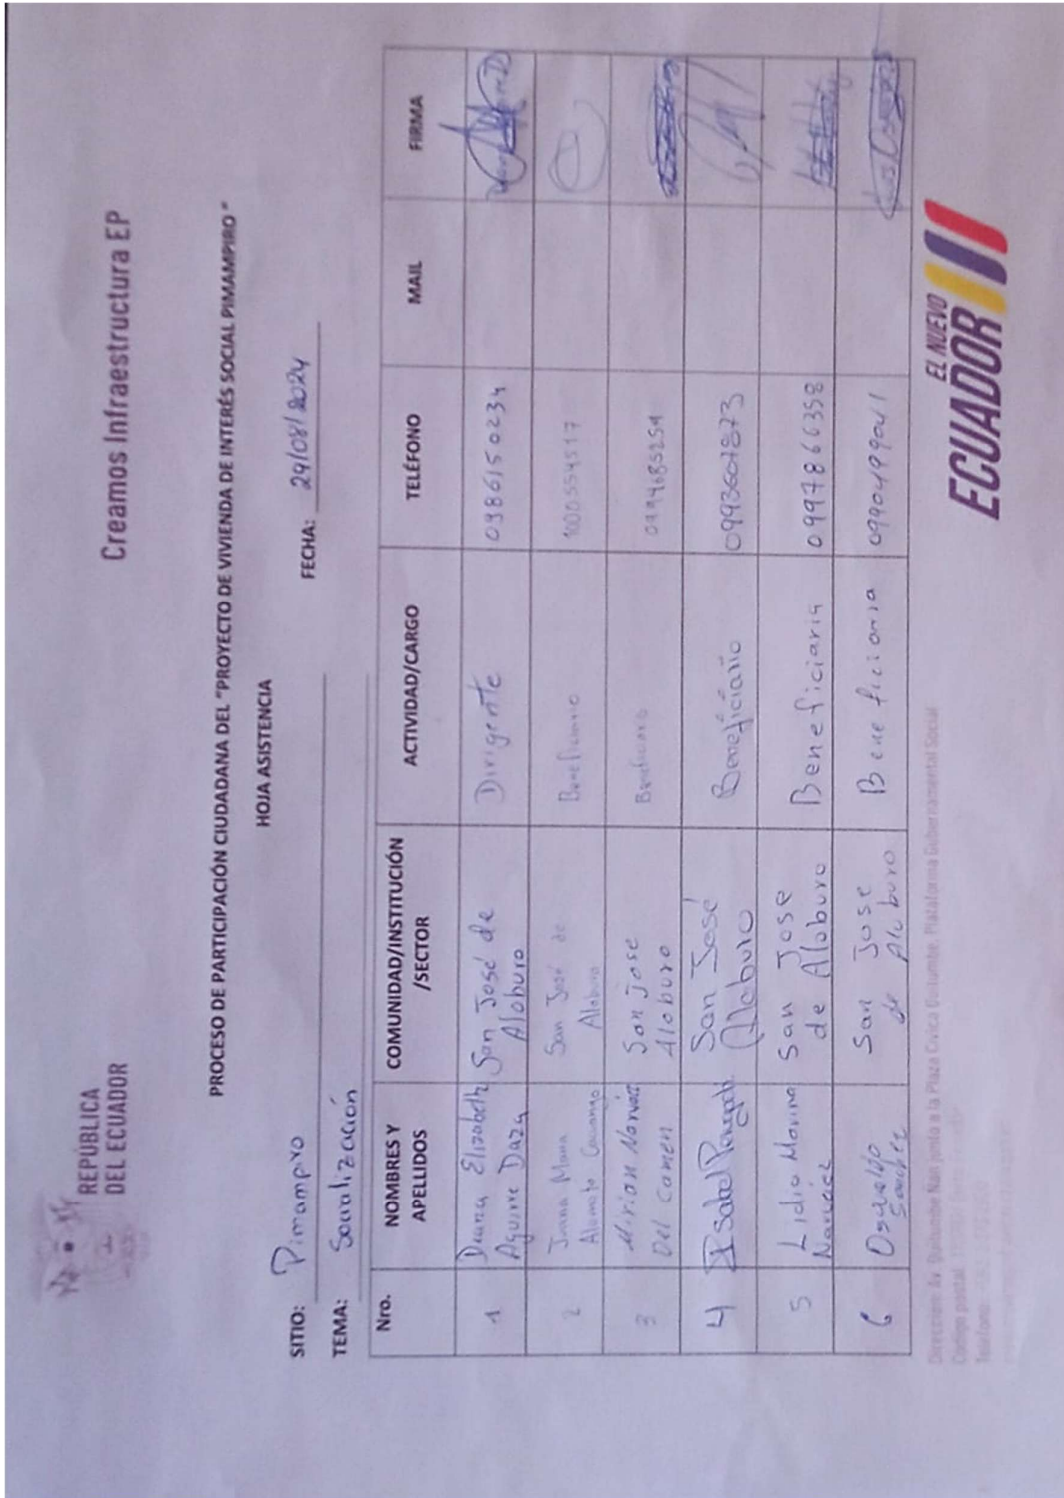 REPÚBLICA
DEL ECUADOR
Creamos Infraestructura EP
PROCESO DE PARTICIPACIÓN CIUDADANA DEL "PROYECTO DE VIVIENDA DE INTERÉS SOCIAL PIMAMPIRO"
HOJA ASISTENCIA
SITIO: Pimampiro
FECHA: 29/08/2024
TEMA: Socialización
Nro.
NOMBRES Y
APELLIDOS
COMUNIDAD/INSTITUCIÓN
/SECTOR
ACTIVIDAD/CARGO
TELÉFONO
MAIL
FIRMA
1
Diana Elizabeth
Aguirre Daza
San José de
Aloburo
Dirigente
0986150234
2
Juana Maria
San José de
Aloburo
Beneficiario
1000554517
3
Mirian
Del Carmen
San jose
Aloburo
Beneficiario
4
Isabel
San José
Aloburo
Beneficiario
5
Lidia Marina
Narváez
San Jose
de Aloburo
Beneficiaria
0997866358
6
Osqualdo
Sanchez
San Jose
de Aloburo
Beneficiario
0990499041
Dirección: Av. Quitumbe Ñan junto a la Plaza Cívica Quitumbe. Plataforma Gubernamental Social
Código postal:
Teléfono:
EL NUEVO
ECUADOR